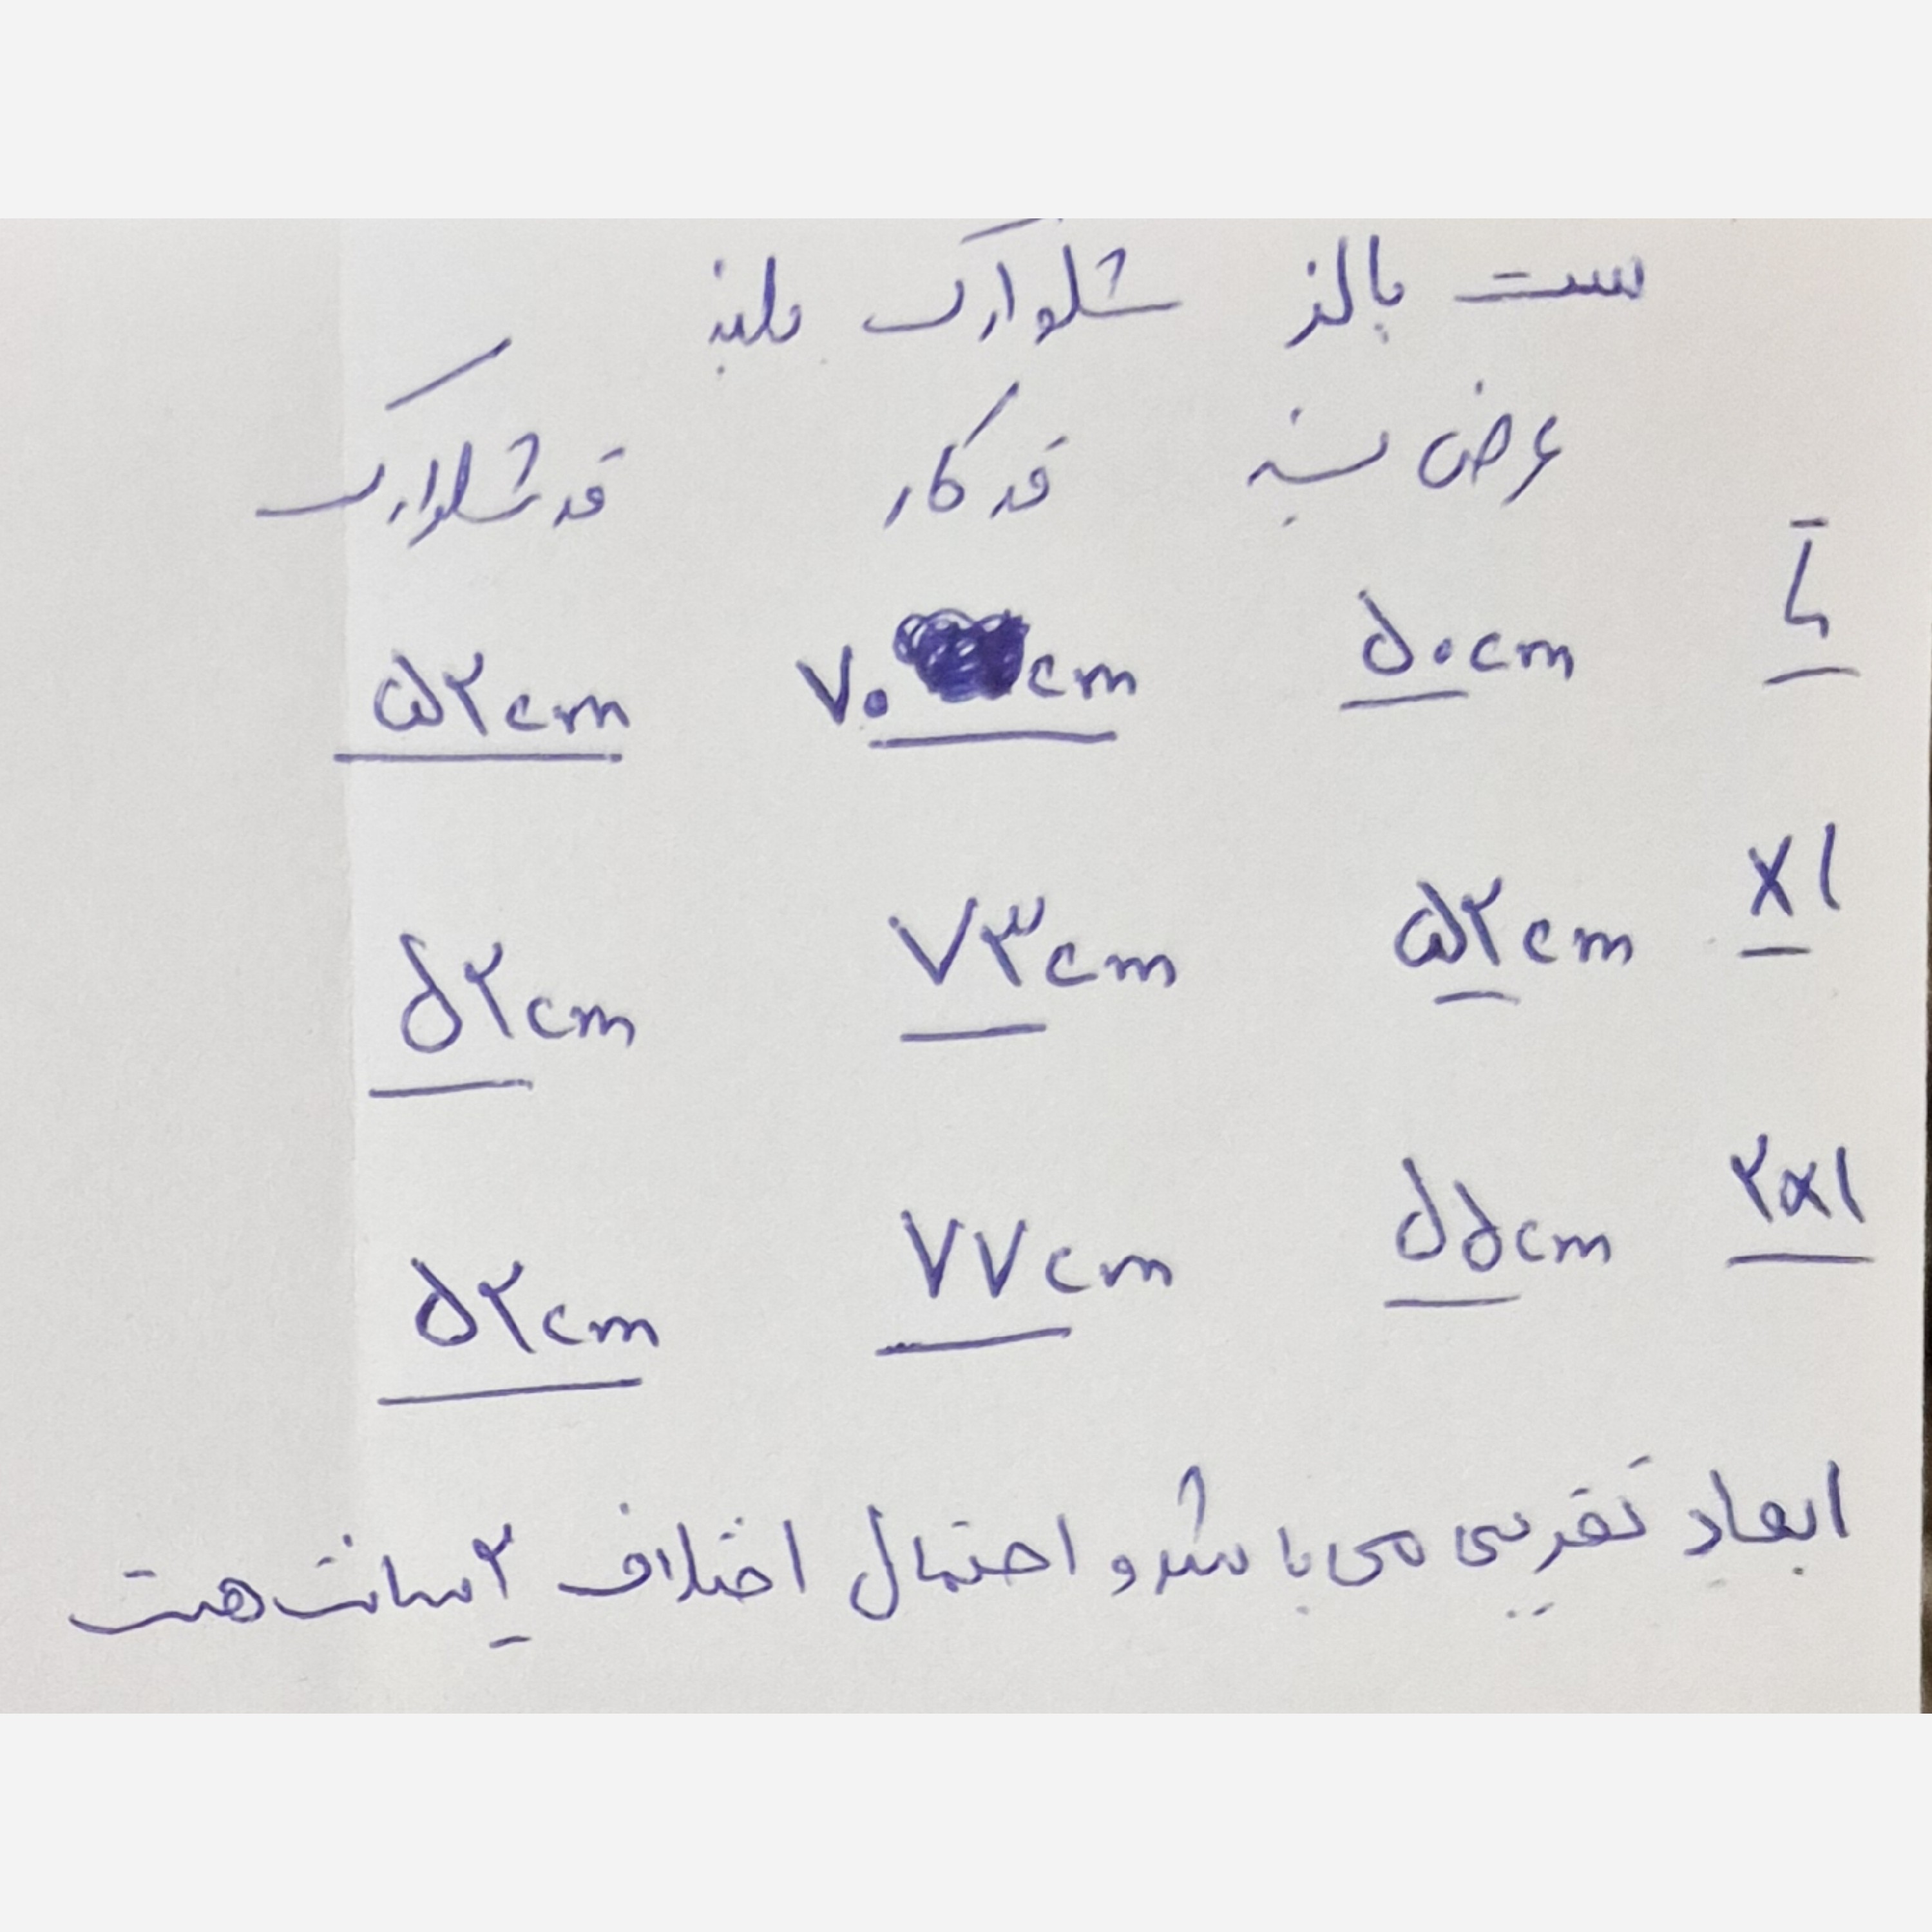 ست بالنز شلوارک بلند
عرض سینه قد کار قد شلوارک
L ۵۰cm ۷۰cm ۵۲cm
Xl ۵۲cm ۷۳cm ۵۲cm
۲xl ۵۵cm ۷۷cm ۵۲cm
ابعاد تقریبی می باشد و احتمال اختلاف ۲ سانت هست